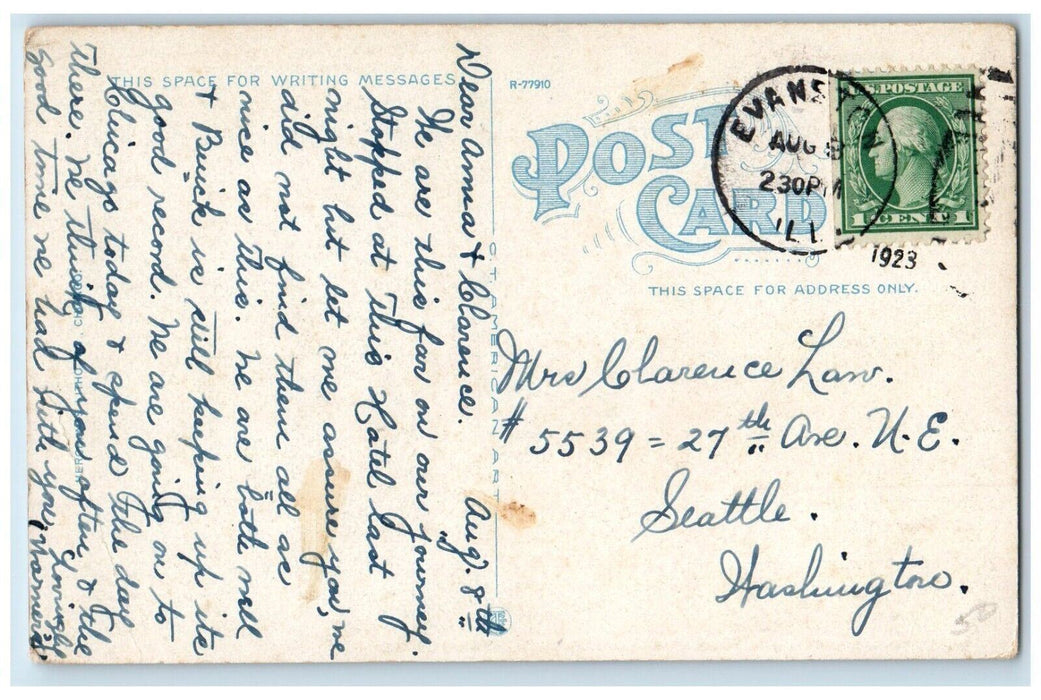 THIS SPACE FOR WRITING MESSAGES
R-77910
POST CARD
EVANSTON
AUG 8
230PM
ILL.
1923
U.S. POSTAGE
1 CENT 1
THIS SPACE FOR ADDRESS ONLY.
C. T. AMERICAN ART
Aug. 8th
Dear Anna & Clarence.
We are this far on our journey.
Stopped at This Hotel last
night but let me assure you, we
did not find them all as
nice as This. We are both well
& Buick is still keeping up its
good record. We are going on to
Chicago today & spend The day
There. We think of you often & the
good time we had with you.
Mrs Clarence Law.
# 5539 = 27th Ave. N.E.
Seattle.
Washington.
50